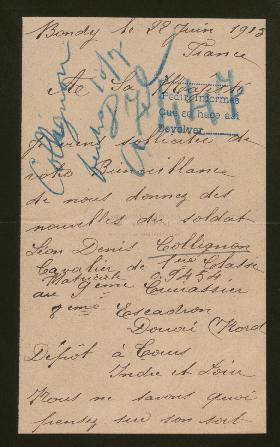 Bondy le 22 Juin 1915
France
A Sa Majesté
Pedir informes
Que se hace así
Devolver
Collignon
Je viens solliciter de
votre Bienveillance
de nous donnez des
nouvelles du soldat
Léon Denis Collignon
Cavalier de 1ère Classe
Matricule 9456
au 9eme Cuirassier
Escadron
Douai (Nord
Dépôt à Tours
Indre et Loire
Nous ne savons quoi
pensez sur son sort